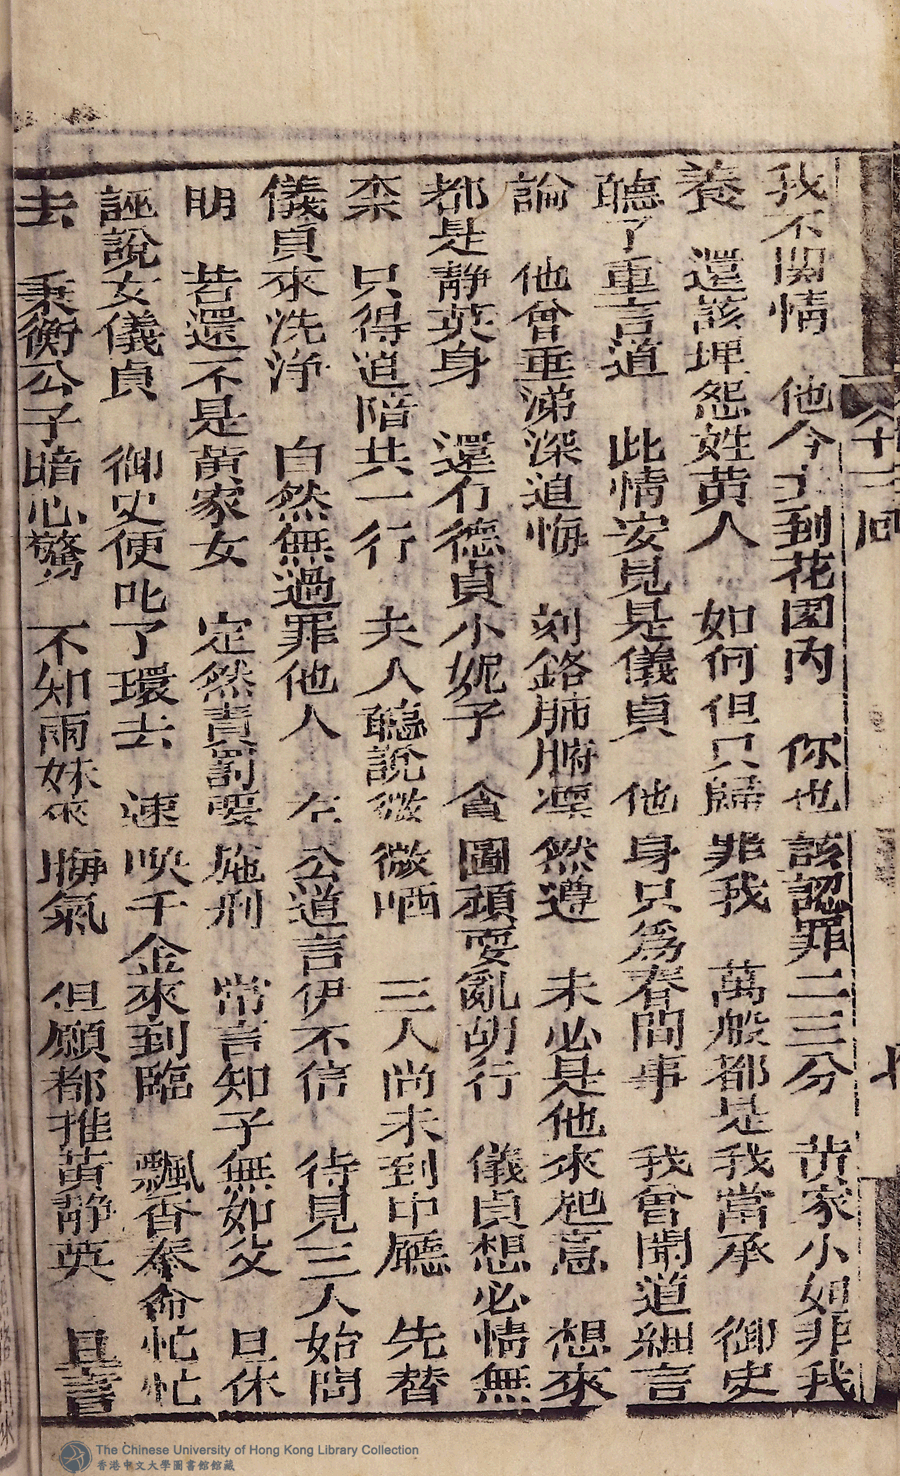 我不関情　他今走到花園内　你也該認罪二三分　黄家小如非我
養　還該埋怨姓黄人　如何但只歸罪我　萬般都是我當承　御史
聽了重言道　此情安見是儀貞　他身只爲春問事　我曾開道細言
論　他曾垂涕深追悔　刻銘肺腑凛然遵　未必是他來起意　想來
都是静英身　還有德貞小妮子　貪圖頑耍亂胡行　儀貞想必情無
柰　只得追陪共一行　夫人聽說微微哂　三人尚未到中廳　先替
儀貞來洗净　自然無過罪他人　左公道言伊不信　待見三人始問
明　若還不是黄家女　定然責罰要施刑　常言知子無如父　且休
誣說女儀貞　御史便叱了環去　速喚千金來到臨　飄香奉命忙忙
去　秉衡公子暗心驚　不知兩妹來晦氣　但願都推黄静英　且言
十二回
七
The Chinese University of Hong Kong Library Collection
香港中文大學圖書館館藏